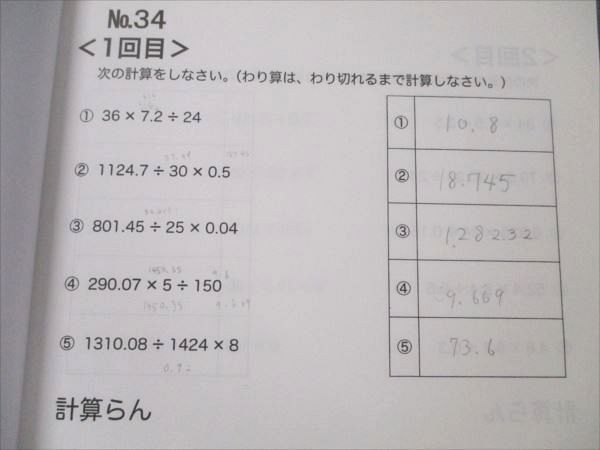 No.34
<1回目>
次の計算をしなさい。(わり算は、わり切れるまで計算しなさい。)
① 36 × 7.2 ÷ 24
① 10.8
② 1124.7 ÷ 30 × 0.5
② 18.745
③ 801.45 ÷ 25 × 0.04
③ 1.28232
④ 290.07 × 5 ÷ 150
1450.35
④ 9.669
1450.35
⑤ 1310.08 ÷ 1424 × 8
⑤ 73.6
0.92
計算らん